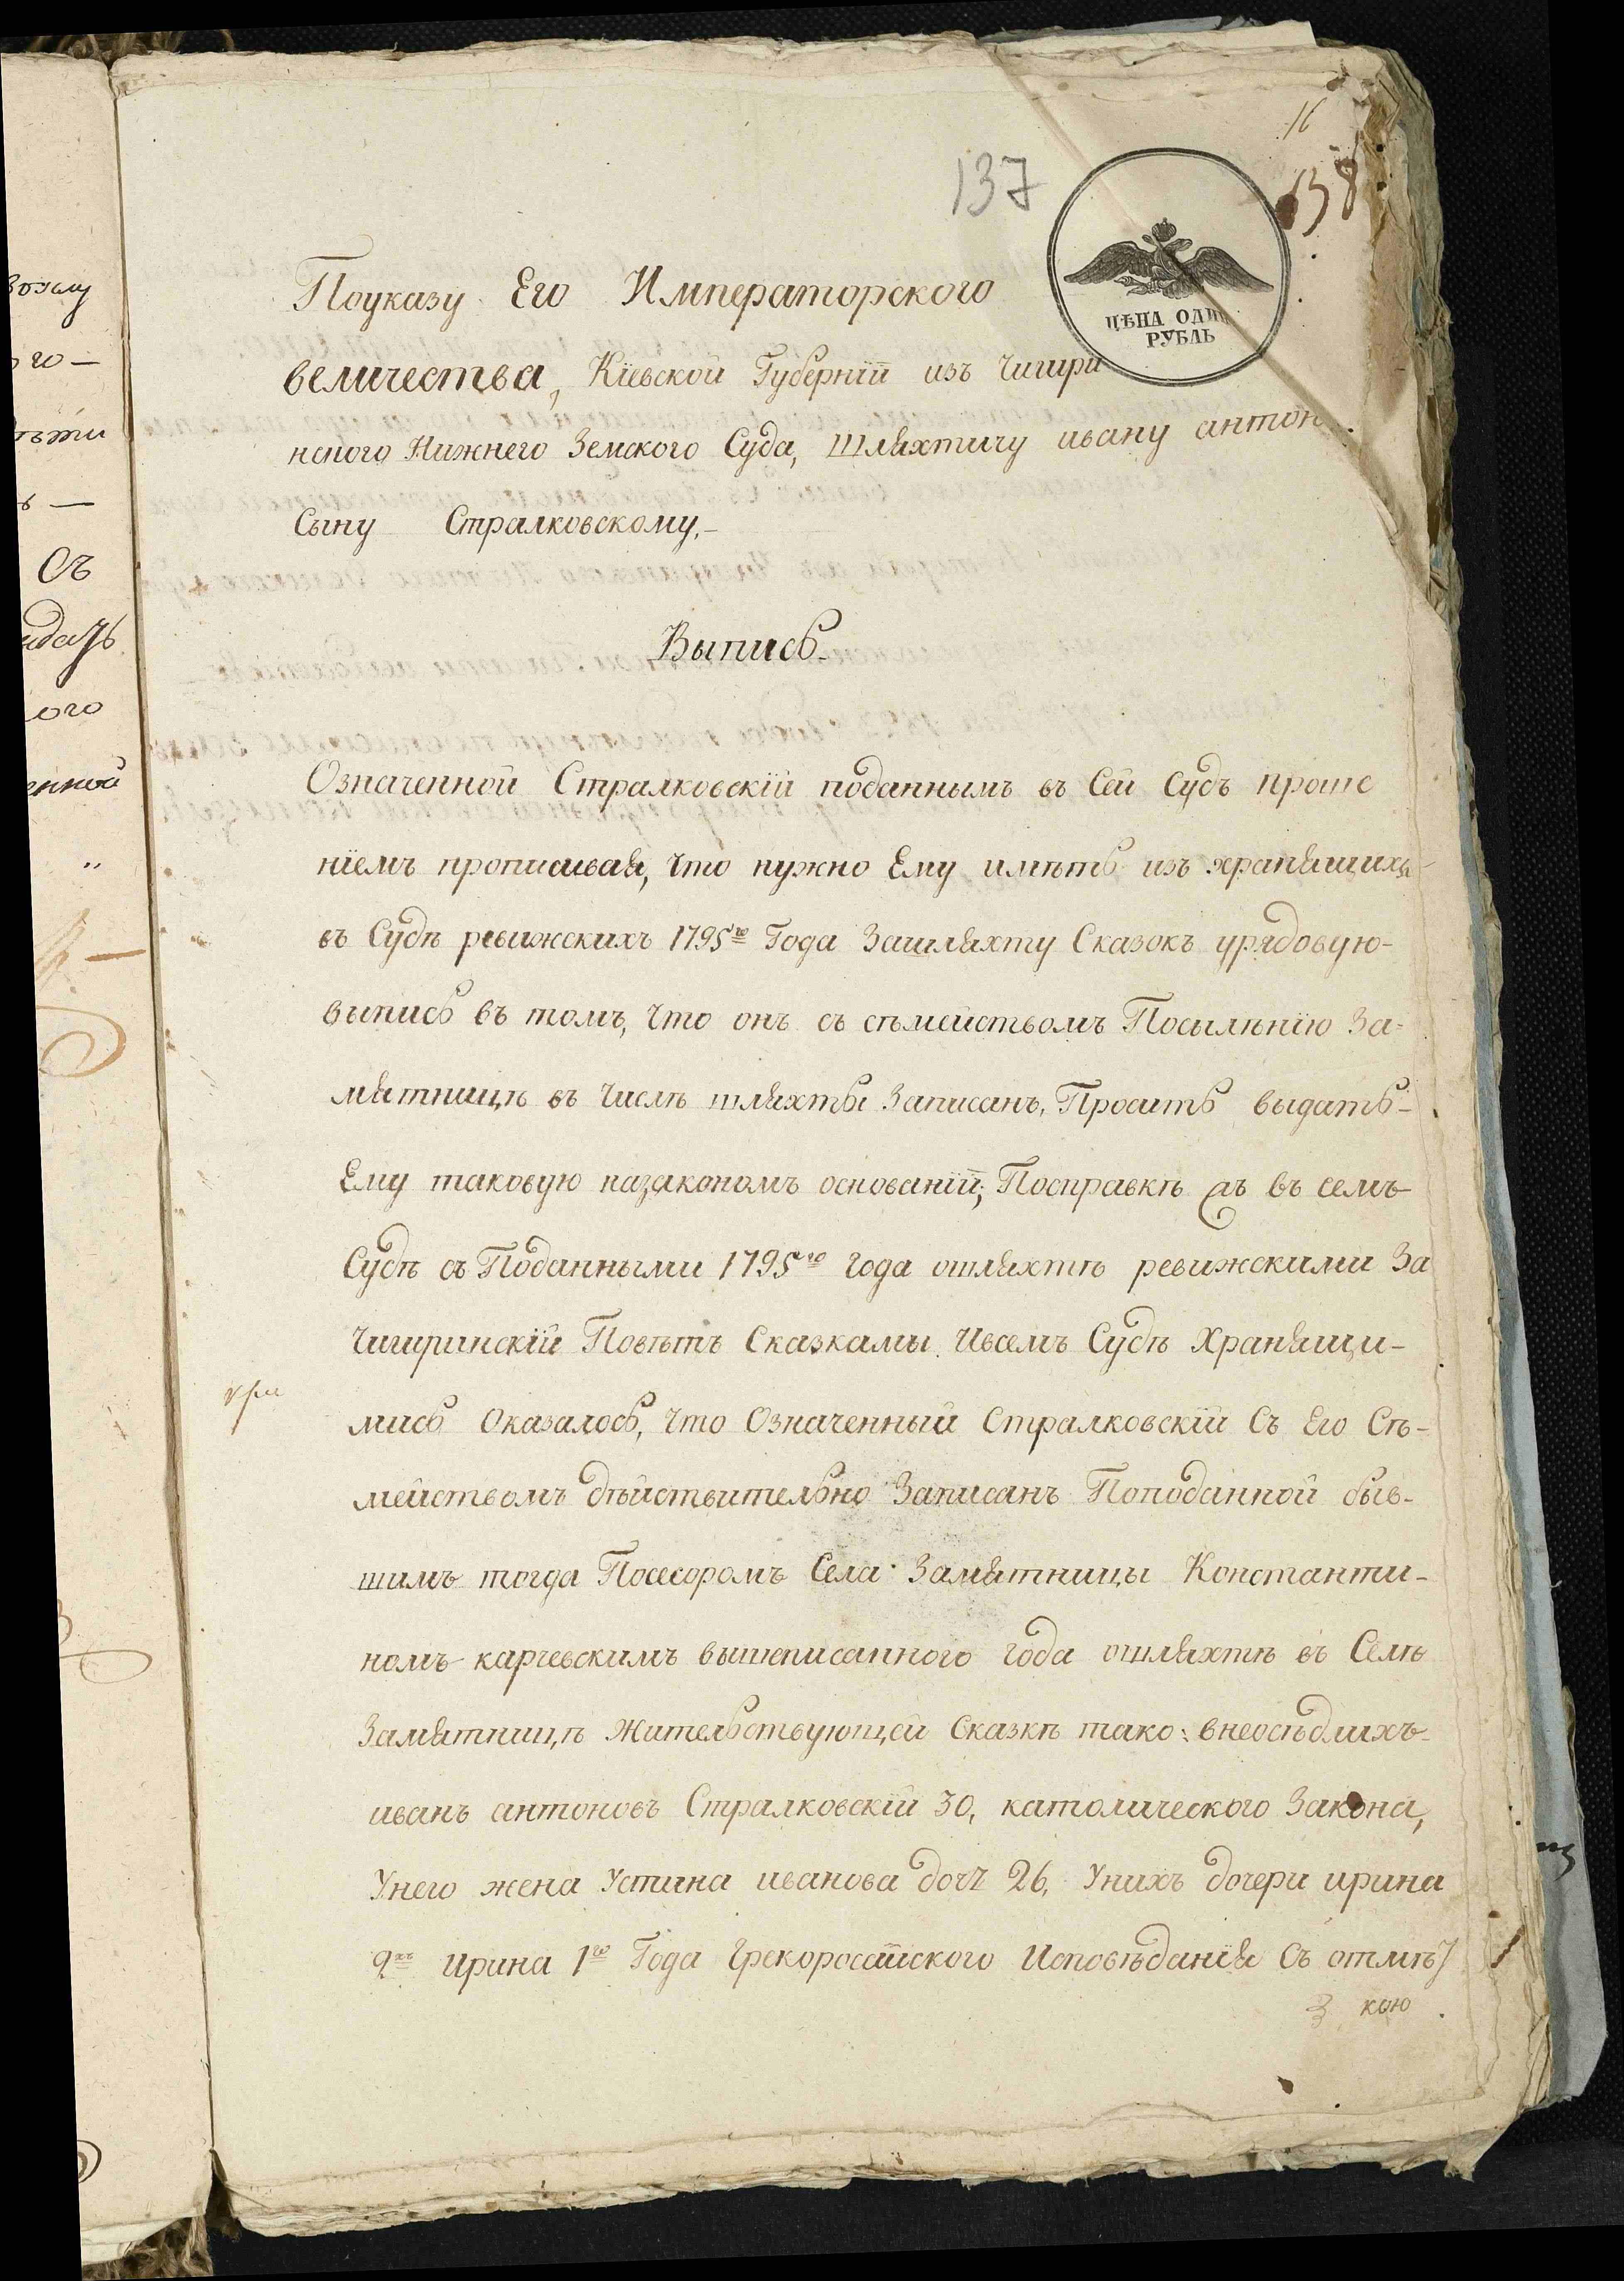 137
16
138
ЦѢНА ОДИ
РУБЛЬ
Поуказу Его Императорского
величества, Кіевской Губерніи изъ Чигири
нского Нижнего Земского Суда, Шляхтичу ивану антон
Сыну Стралковскому,-
Выпись.
Означенной Стралковскій поданнымъ въ Сей Судъ проше
ніемъ прописывая, что нужно Ему имѣть изъ хранящихъ
въ Судѣ ревижскихъ 1795го Года Зашляхту Сказокъ урядовую-
выпись въ томъ, что онъ съ сѣмействомъ Посылѣнію За-
мятницѣ въ Числѣ шляхты Записанъ, Просить выдать-
Ему таковую назакономъ основаніи; Посправкѣ въ семъ
Судѣ съ Поданными 1795го года ошляхтѣ ревижскими За
Чигиринскій Повѣтъ Сказкамы Ивсемъ Судѣ Хранящи-
мись Оказалось, что Означенный Стралковскій Съ Его Сѣ-
мействомъ дѣйствительно Записанъ Поподанной быв-
шимъ тогда Посесоромъ Села Замятницы Константи-
номъ карчевскимъ вышеписанного года ошляхтѣ въ Селѣ
Замятницѣ Жительствующей Сказкѣ тако: внеосѣдлихъ
иванъ антоновъ Стралковскій 30, католического Закона,
Унего жена Устина иванова дочь 26, Унихъ дочери ирина
9ть Ирина 1го Года Грекоросійского Исповѣданія Съ отмѣ
кою
возму
го-
ѣти
ъ -
Съ
ого
енной